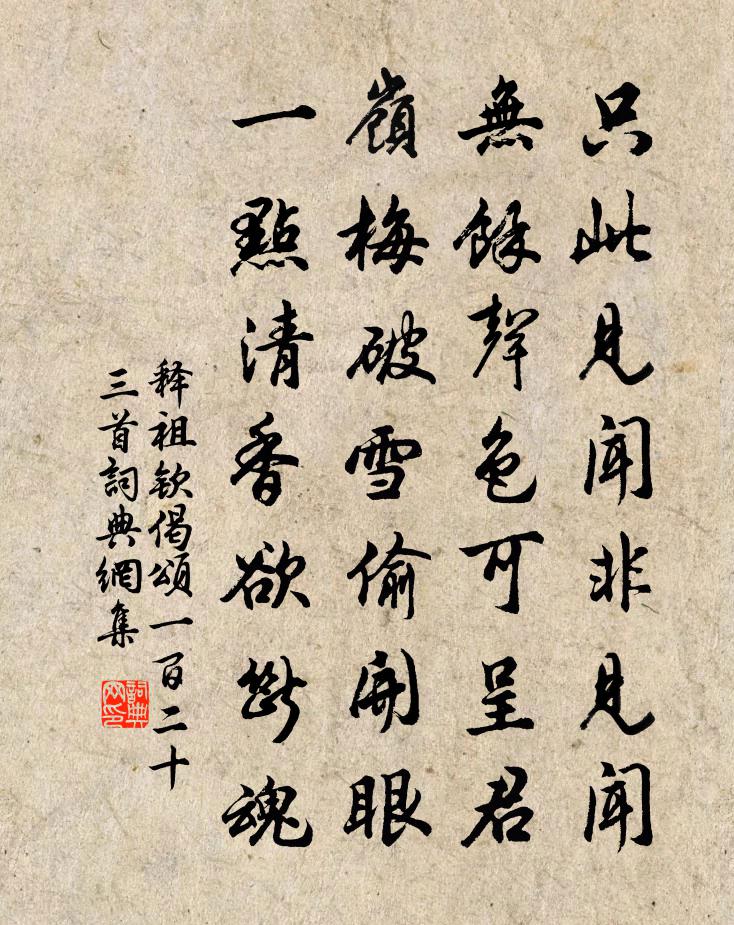 只此見聞非見聞
無餘聲色可呈君
嶺梅破雪偷開眼
一點清香欲斷魂
释祖欽偈頌一百二十
三首詞典網集
詞典
网印